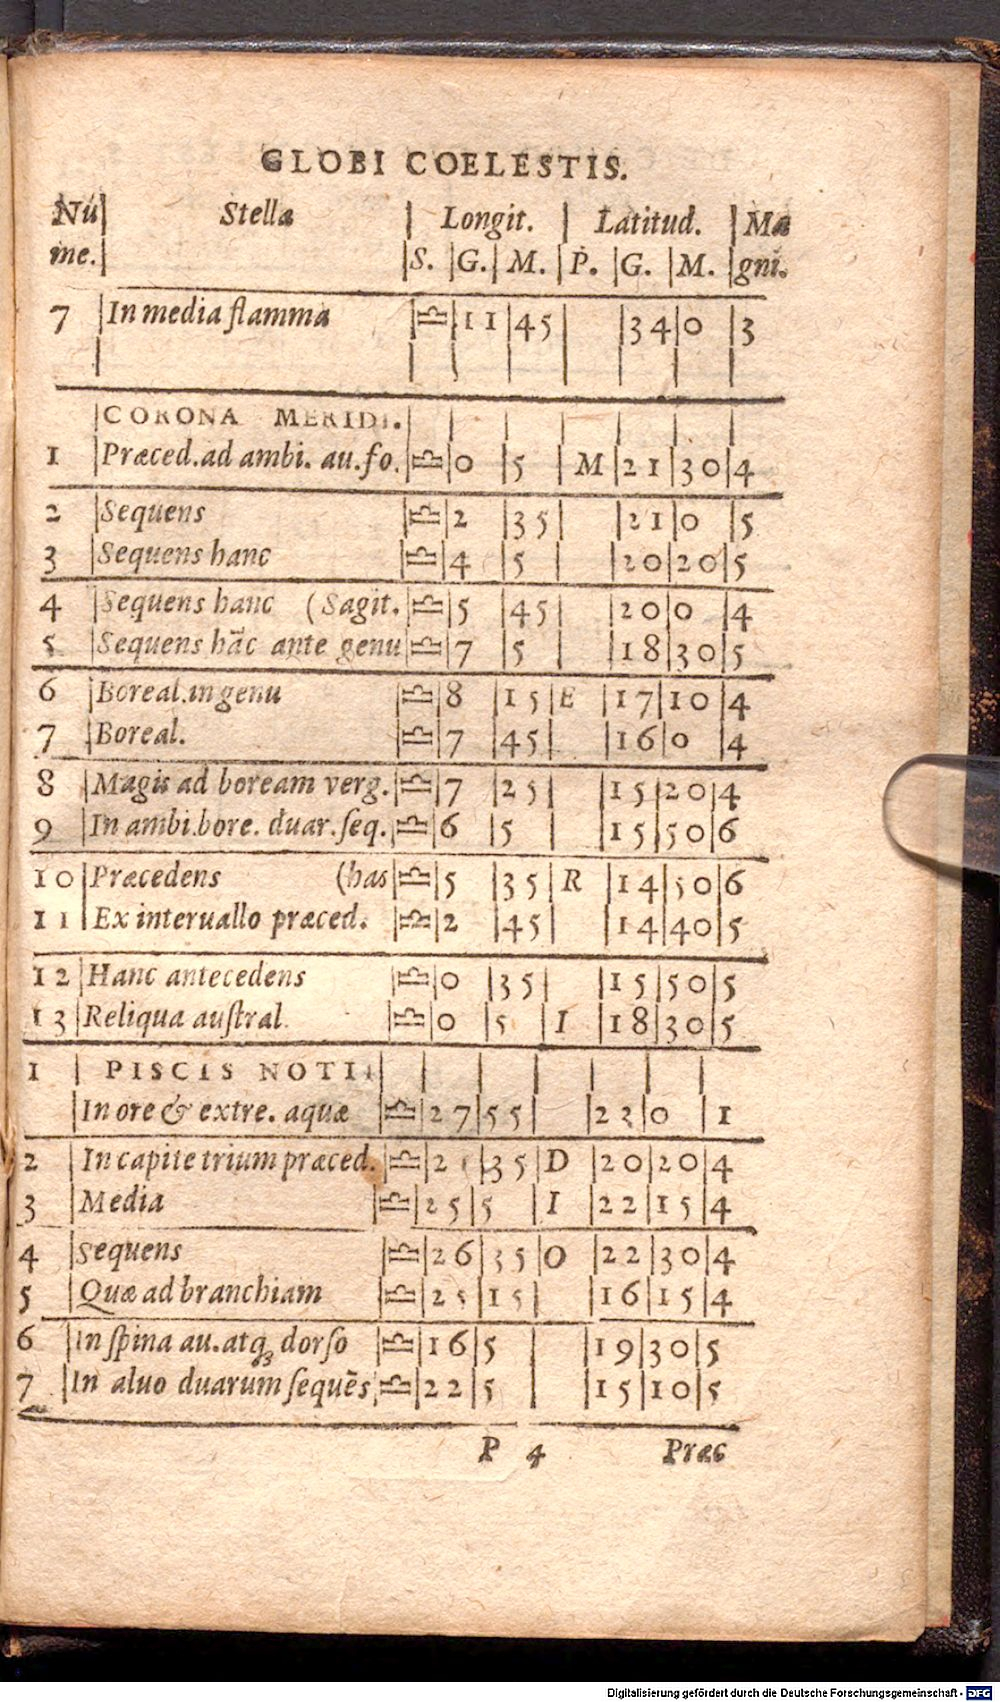 GLOBI COELESTIS.
Nu | Stellæ | Longit. | Latitud. | Ma
me. | | S. | G. | M. | P. | G. | M. | gni.
7 | In media flamma | ♎ | 11 | 45 | | 34 | 0 | 3
CORONA MERIDI.
1 | Præced. ad ambi. au. fo. | ♎ | 0 | 5 | M | 21 | 30 | 4
2 | Sequens | ♎ | 2 | 35 | | 21 | 0 | 5
3 | Sequens hanc | ♎ | 4 | 5 | | 20 | 20 | 5
4 | Sequens hanc (Sagit. | ♎ | 5 | 45 | | 20 | 0 | 4
5 | Sequens hāc ante genu | ♎ | 7 | 5 | | 18 | 30 | 5
6 | Boreal. in genu | ♎ | 8 | 15 | E | 17 | 10 | 4
7 | Boreal. | ♎ | 7 | 45 | | 16 | 0 | 4
8 | Magis ad boream verg. | ♎ | 7 | 25 | | 15 | 20 | 4
9 | In ambi. bore. duar. ſeq. | ♎ | 6 | 5 | | 15 | 50 | 6
10 | Præcedens (has | ♎ | 5 | 35 | R | 14 | 50 | 6
11 | Ex interuallo præced. | ♎ | 2 | 45 | | 14 | 40 | 5
12 | Hanc antecedens | ♎ | 0 | 35 | | 15 | 50 | 5
13 | Reliqua auſtral. | ♎ | 0 | 5 | I | 18 | 30 | 5
1 | PISCIS NOTII
In ore & extre. aquæ | ♎ | 27 | 55 | | 23 | 0 | 1
2 | In capite trium præced. | ♎ | | 35 | D | 20 | 20 | 4
3 | Media | ♎ | 25 | 5 | I | 22 | 15 | 4
4 | Sequens | ♎ | 26 | 35 | O | 22 | 30 | 4
5 | Quæ ad branchiam | ♎ | 25 | 15 | | 16 | 15 | 4
6 | In ſpina au. atq; dorſo | ♎ | 16 | 5 | | 19 | 30 | 5
7 | In aluo duarum ſequēs | ♎ | 22 | 5 | | 15 | 10 | 5
P 4 Præc
Digitalisierung gefördert durch die Deutsche Forschungsgemeinschaft - DFG